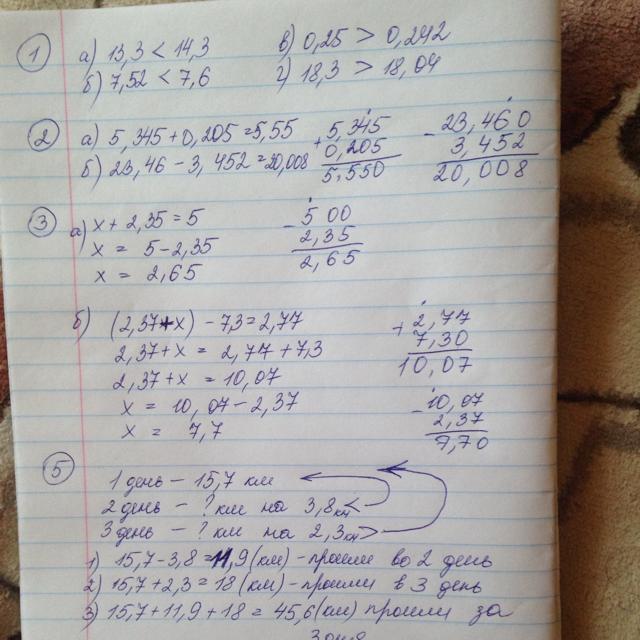 1 а) 13,3 < 14,3 в) 0,25 > 0,242
б) 7,52 < 7,6 г) 18,3 > 18,04
2 а) 5,345 + 0,205 = 5,55
б) 23,46 - 3,452 = 20,008
+ 5,345
0,205
5,550
- 23,460
3,452
20,008
3 а) x + 2,35 = 5
x = 5 - 2,35
x = 2,65
- 5 00
2,35
2,65
б) (2,37 + x) - 7,3 = 2,77
2,37 + x = 2,77 + 7,3
2,37 + x = 10,07
x = 10,07 - 2,37
x = 7,7
+ 2,77
7,30
10,07
- 10,07
2,37
7,70
5
1 день - 15,7 км
2 день - ? км на 3,8 км <
3 день - ? км на 2,3 км >
1) 15,7 - 3,8 = 11,9 (км) - прошли во 2 день
2) 15,7 + 2,3 = 18 (км) - прошли в 3 день
3) 15,7 + 11,9 + 18 = 45,6 (км) прошли за